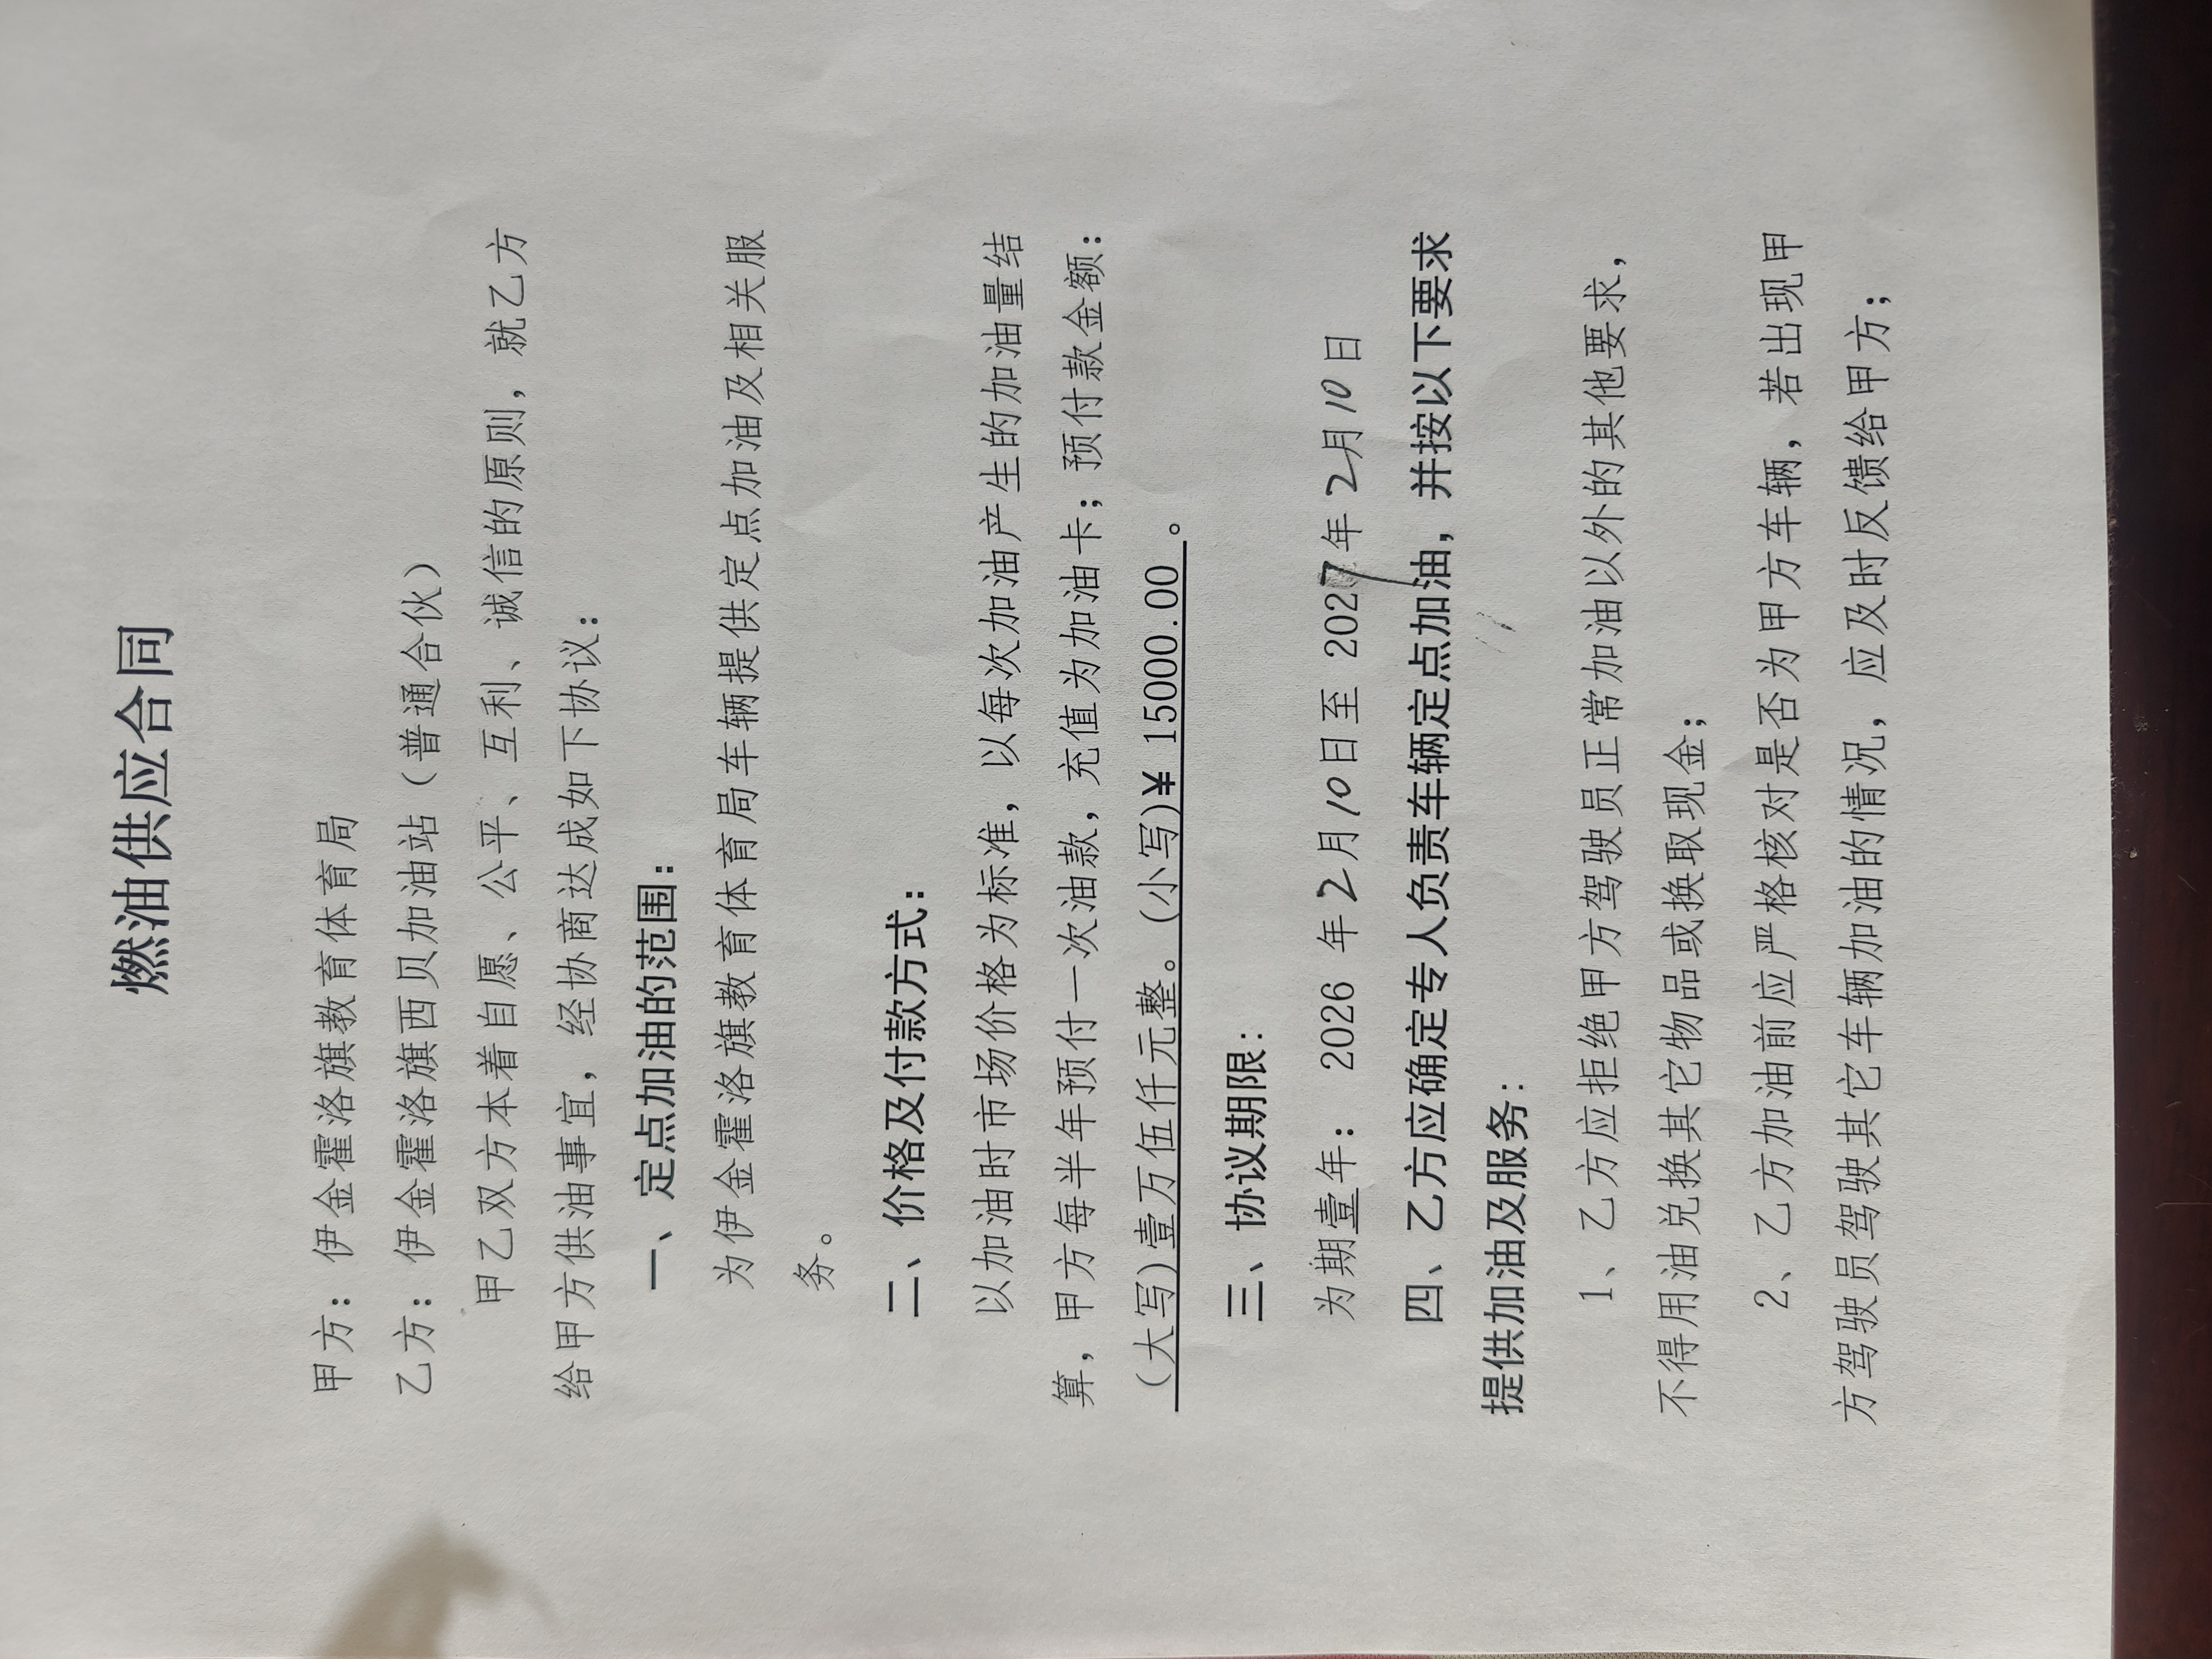 燃油供应合同
甲方：伊金霍洛旗教育体育局
乙方：伊金霍洛旗西贝加油站（普通合伙）
甲乙双方本着自愿、公平、互利、诚信的原则，就乙方
给甲方供油事宜，经协商达成如下协议：
一、定点加油的范围：
为伊金霍洛旗教育体育局车辆提供定点加油及相关服
务。
二、价格及付款方式：
以加油时市场价格为标准，以每次加油产生的加油量结
算，甲方每半年预付一次油款，充值为加油卡；预付款金额：
（大写)壹万伍仟元整。（小写)¥15000.00 。
三、协议期限：
为期壹年：2026 年2月10日至 2027年2月10日
四、乙方应确定专人负责车辆定点加油，并按以下要求
提供加油及服务：
1、乙方应拒绝甲方驾驶员正常加油以外的其他要求，
不得用油兑换其它物品或换取现金；
2、乙方加油前应严格核对是否为甲方车辆，若出现甲
方驾驶员驾驶其它车辆加油的情况，应及时反馈给甲方；